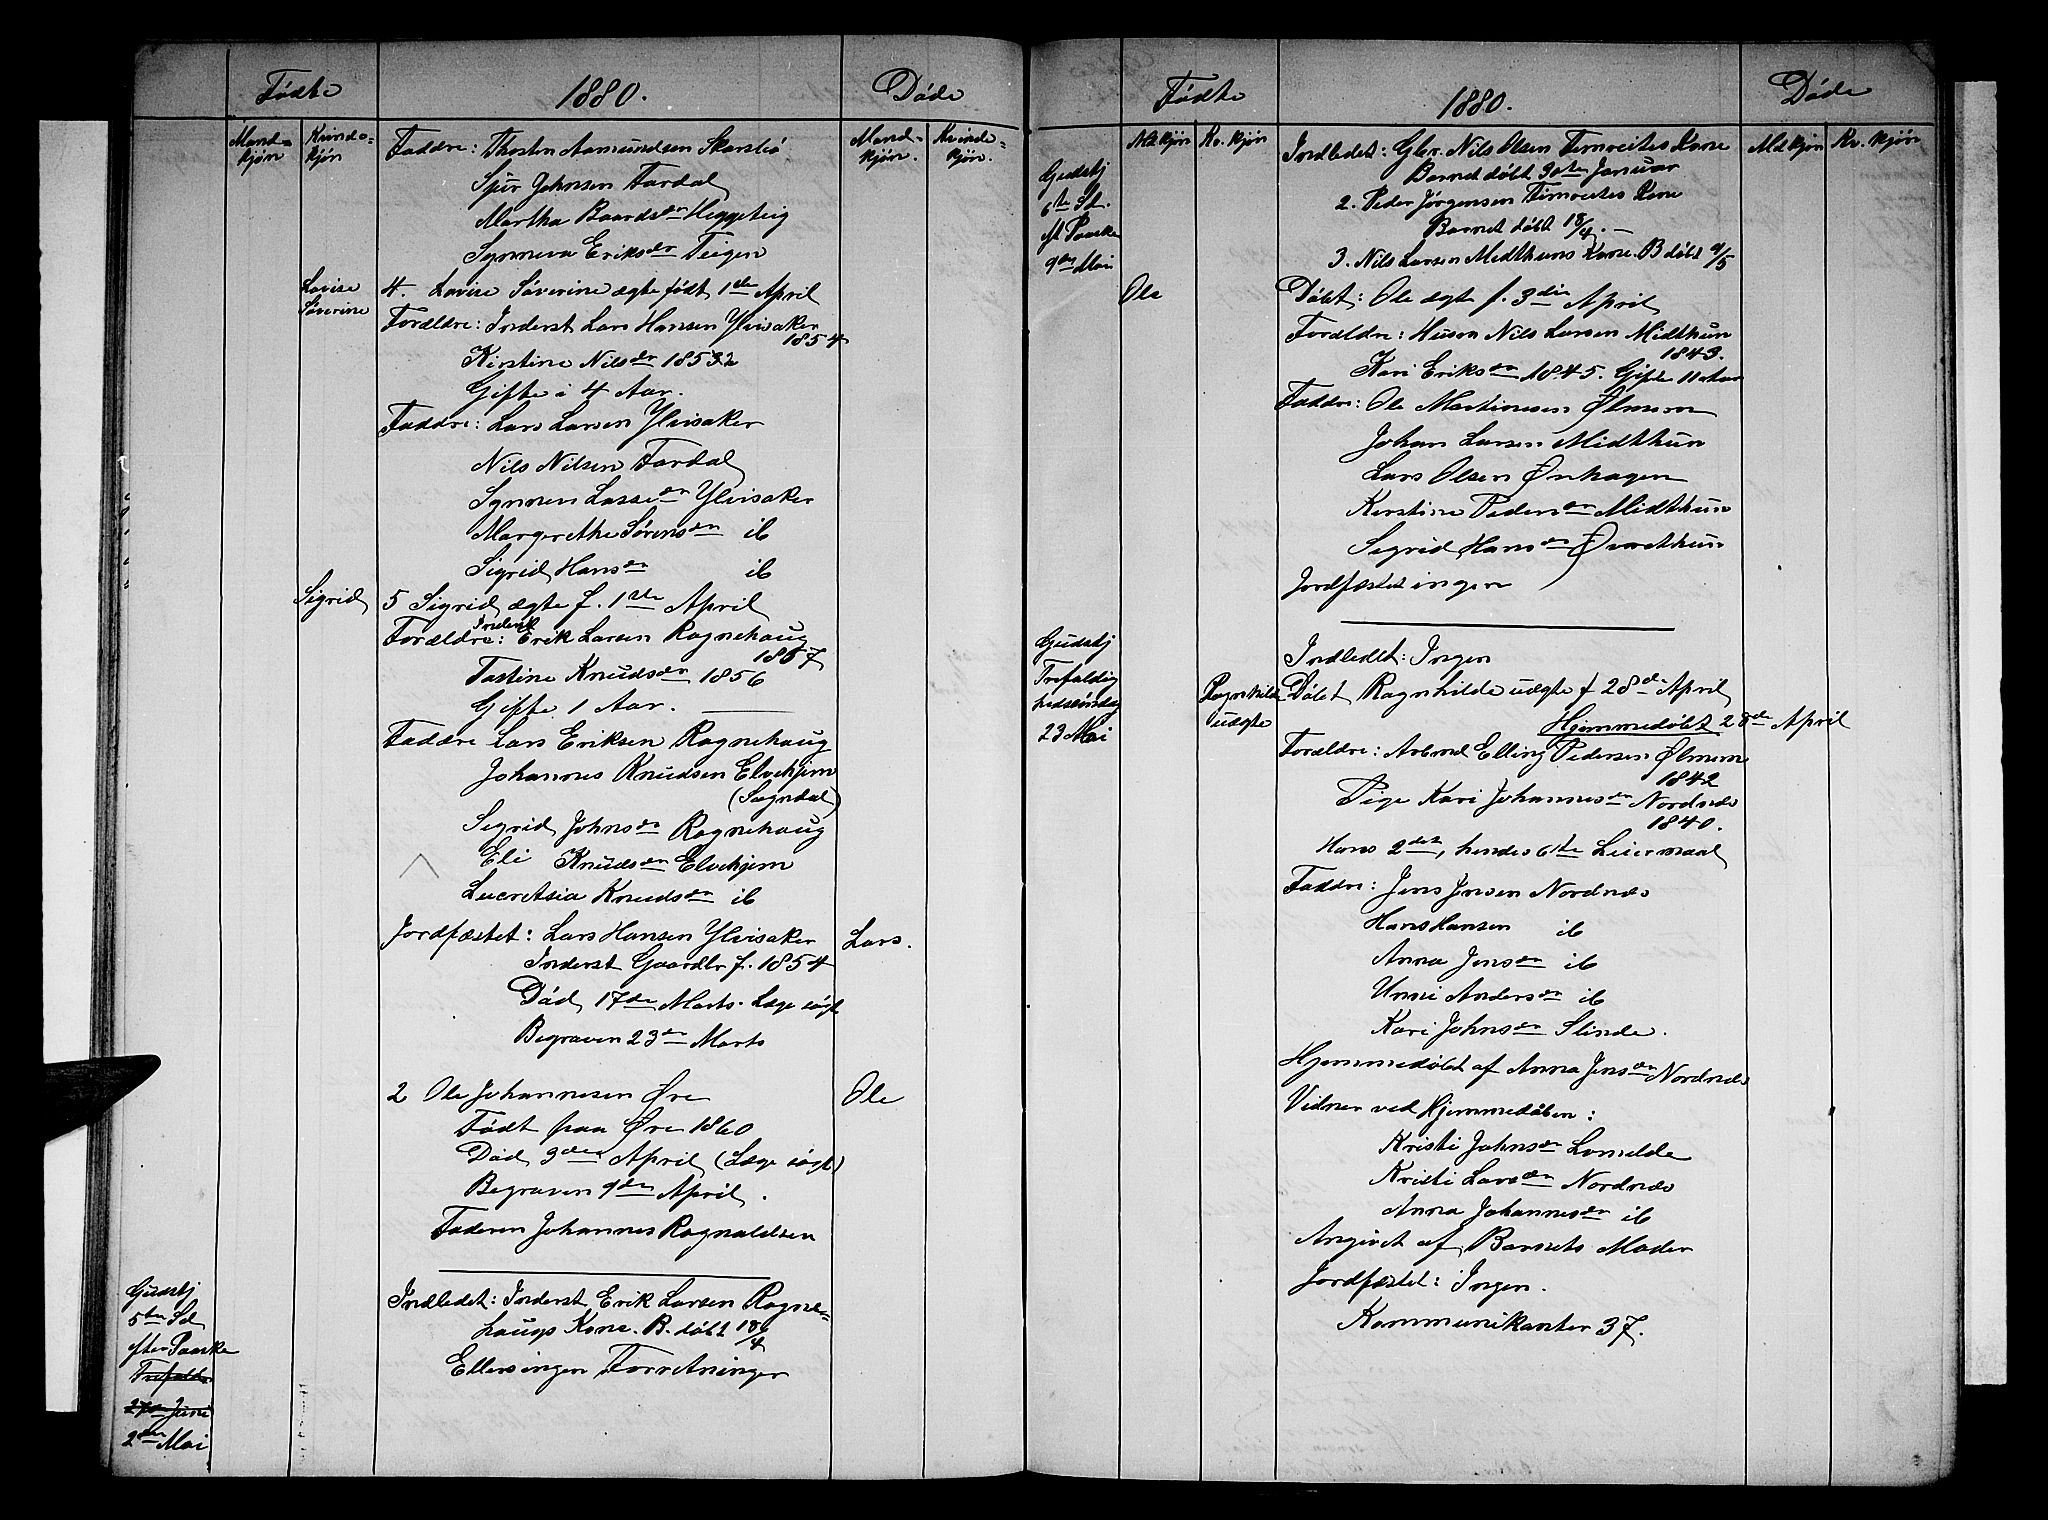 Fødte
1880.
Døde
Mand=
kjøn
Kvinde=
kjøn
Mand=
kjøn.
Kvinde=
kjøn.
Faddre: Thosten Aamundsen Skarsbø
Spür Johnsen Fardal
Martha Baardsdr Heggeteig
Synneva Eriksdr Teigen
Lovise
Søverine
4. Lovise Søverine ægte født 1ste April
Forældre: Inderst Lars Hansen Ylvisaker
1854
Kirstine Nilsdr 1852
Gifte i 4 Aar.
Faddre: Lars Larsen Ylvisaker
Nils Nilsen Fardal
Synnev Lassedr Ylvisaker
Margrethe Sørensdr ib
Sigrid Hansdr ib
Sigrid
5 Sigrid ægte f. 1ste April
Forældre: Inderst Erik Larsen Ragnehaug
1857
Tostine Knudsdr 1856
Gifte 1 Aar.
Faddre Lars Eriksen Ragnehaug
Johannes Knudsen Elvekjem
(Sogndal)
Sigrid Johnsdr Ragnehaug
Eli Knudsdr Elvekjem
Lucretsia Knudsdr ib
Jordfæstet: Lars Hansen Ylvisaker
Lars.
Inderst Gaardbr f. 1854
Død 17de Marts. Læge søgt
Begraven 23de Marts
2 Ole Johannesen Øre
Ole
Født paa Øre 1860
Død 3die April (Læge søgt)
Begraven 9de April.
Faderen Johannes Ragnaldsen
Gudstj
5te Sd
efter Paaske
2den Mai
Indledet: Inderst Erik Larsen Ragne-
haugs Kone. B. døbt 18/4
Ellers ingen Forretninger
Fødte
1880.
Døde
Mdkjøn
Kv. kjøn
Mdkjøn
Kv. kjøn
Gudstj
6te Sd.
ef Paaske
9de Mai
Indledet: Gbr. Nils Olsen Fimreites Kone
Barnet døbt 30te Januar
2. Peder Jørgensen Fimreites Kone
Barnet døbt 18/4. —
3. Nils Larsen Midthuns Kone. B døbt 9/5
Ole
Døbt: Ole ægte f. 3die April
Forældre: Husm Nils Larsen Midthun
1843.
Kari Eriksdr 1845. Gifte 11 Aar
Faddre: Ole Martinusen Ølmem
Johan Larsen Midthun
Lars Olsen Ønhagen
Kerstine Pedersdr Midthun
Sigrid Hansdr Øvrethun
Jordfæstet ingen
Gudstj
Trefaldig
hedssøndag
23 Mai
Indledet: Ingen
Ragnhilde
uægte
Døbt Ragnhilde uægte f 28de April
Hjemmedøbt 28de April
Forældre: Arbmd Elling Pedersen Ølmem
1842
Pige Kari Johannesdr Nordnæs
1840.
Hans 2det, hendes 6te Leiermaal
Faddre: Jens Jensen Nordnæs
Hans Hansen ib
Anna Jensdr ib
Unni Andersdr ib
Kari Johnsdr Slinde.
Hjemmedøbt af Anna Jensdr Nordnæs
Vidner ved Hjemmedøben:
Kristi Johnsdr Lomelde
Kristi Larsdr Nordnæs
Anna Johannesdr ib
Angivet af Barnets Moder
Jordfæstet: Ingen.
Kommunikanter 37.